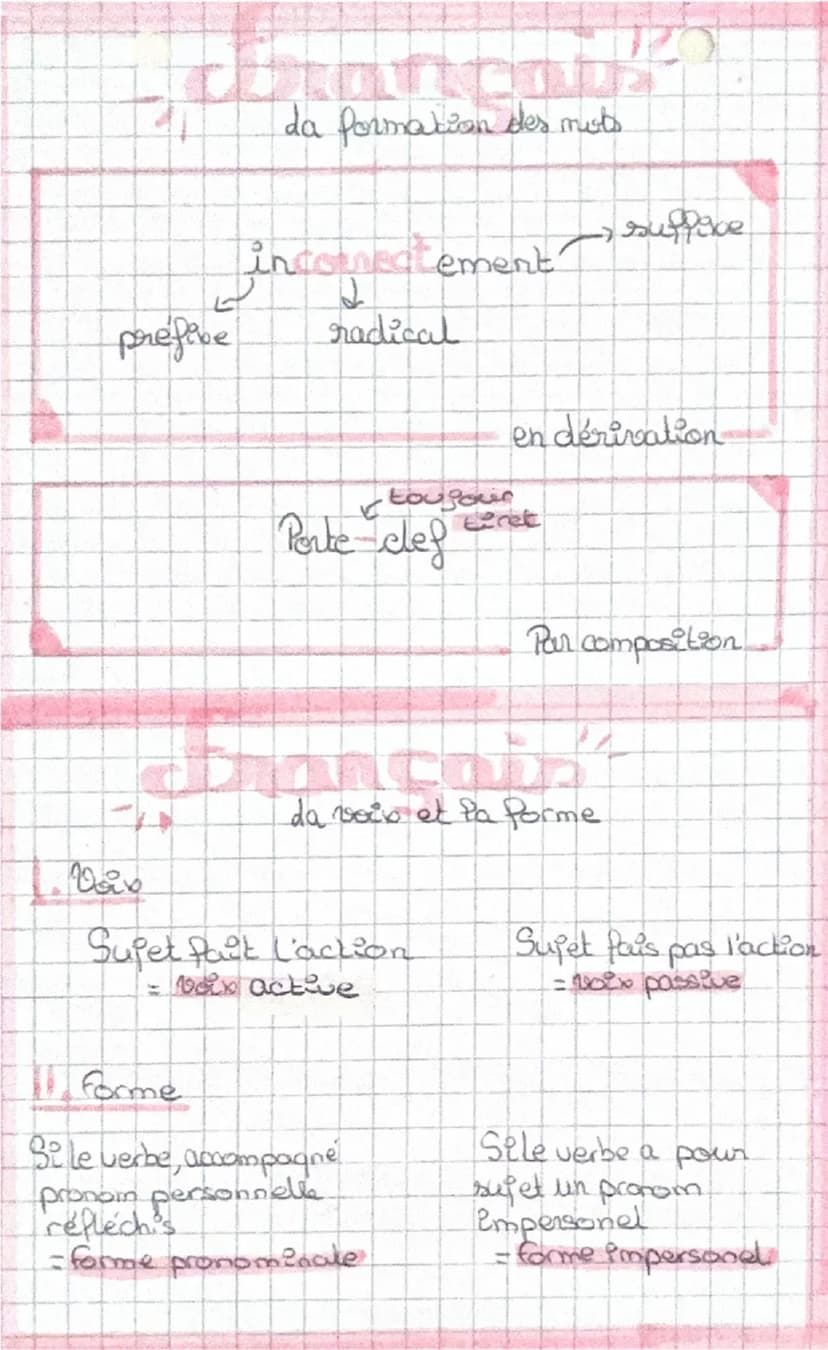 Français
La formation des mots
incorrectement → suffixe
préfixe
radical
en dérivation
toujours
tiret
Porte-clef
Par composition
Français
La voix et la forme
I. Voix
Sujet fait l'action
= voix active
Sujet fais pas l'action
= voix passive
II. Forme
Si le verbe, accompagné
pronom personnelle
réfléchis
= forme pronominale
Si le verbe a pour
sujet un pronom
impersonel
= forme impersonel